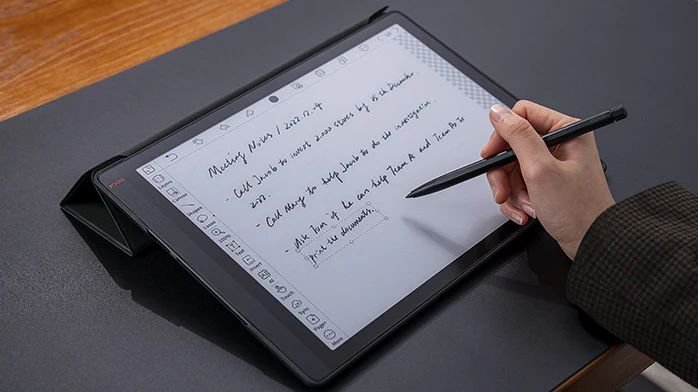 BOOX
Meeting Notes /
- Call Jacob to invest 2,000 stores by 15th December,
2022.
- Call Mary to help Jacob to do the investigation.
- Ask Tom if he can help Team A and Team B to
print the documents.
Layers
Canvas
Shapes
Lasso
Text
Insert
AI
Touch
Sync
Pages
More